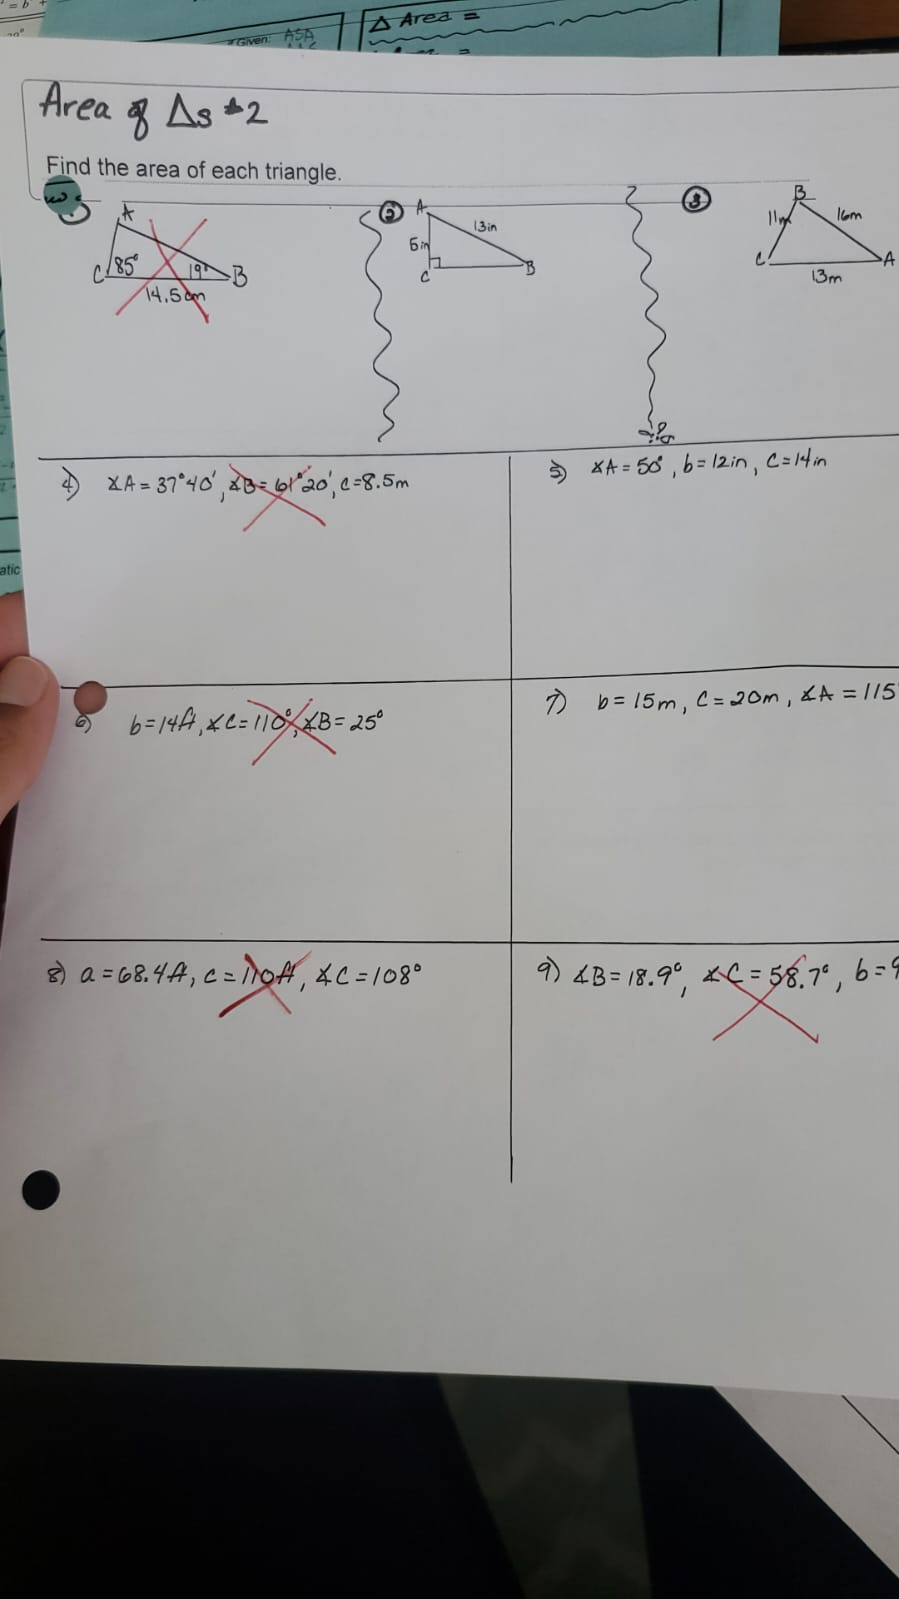 = b
Given: ASA
Δ Area =
Area of Δs #2
Find the area of each triangle.
A
C 85° 19° B
14.5cm
② A
13in
5in
C B
③ B
11m 16m
C A
13m
4) ∡A = 37°40', ∡B = 61°20', c=8.5m
5) ∡A = 50°, b=12in, c=14in
atic
6) b=14ft, ∡C=110°, ∡B=25°
7) b=15m, c=20m, ∡A=115
8) a=68.4ft, c=110ft, ∡C=108°
9) ∡B=18.9°, ∡C=58.7°, b=9